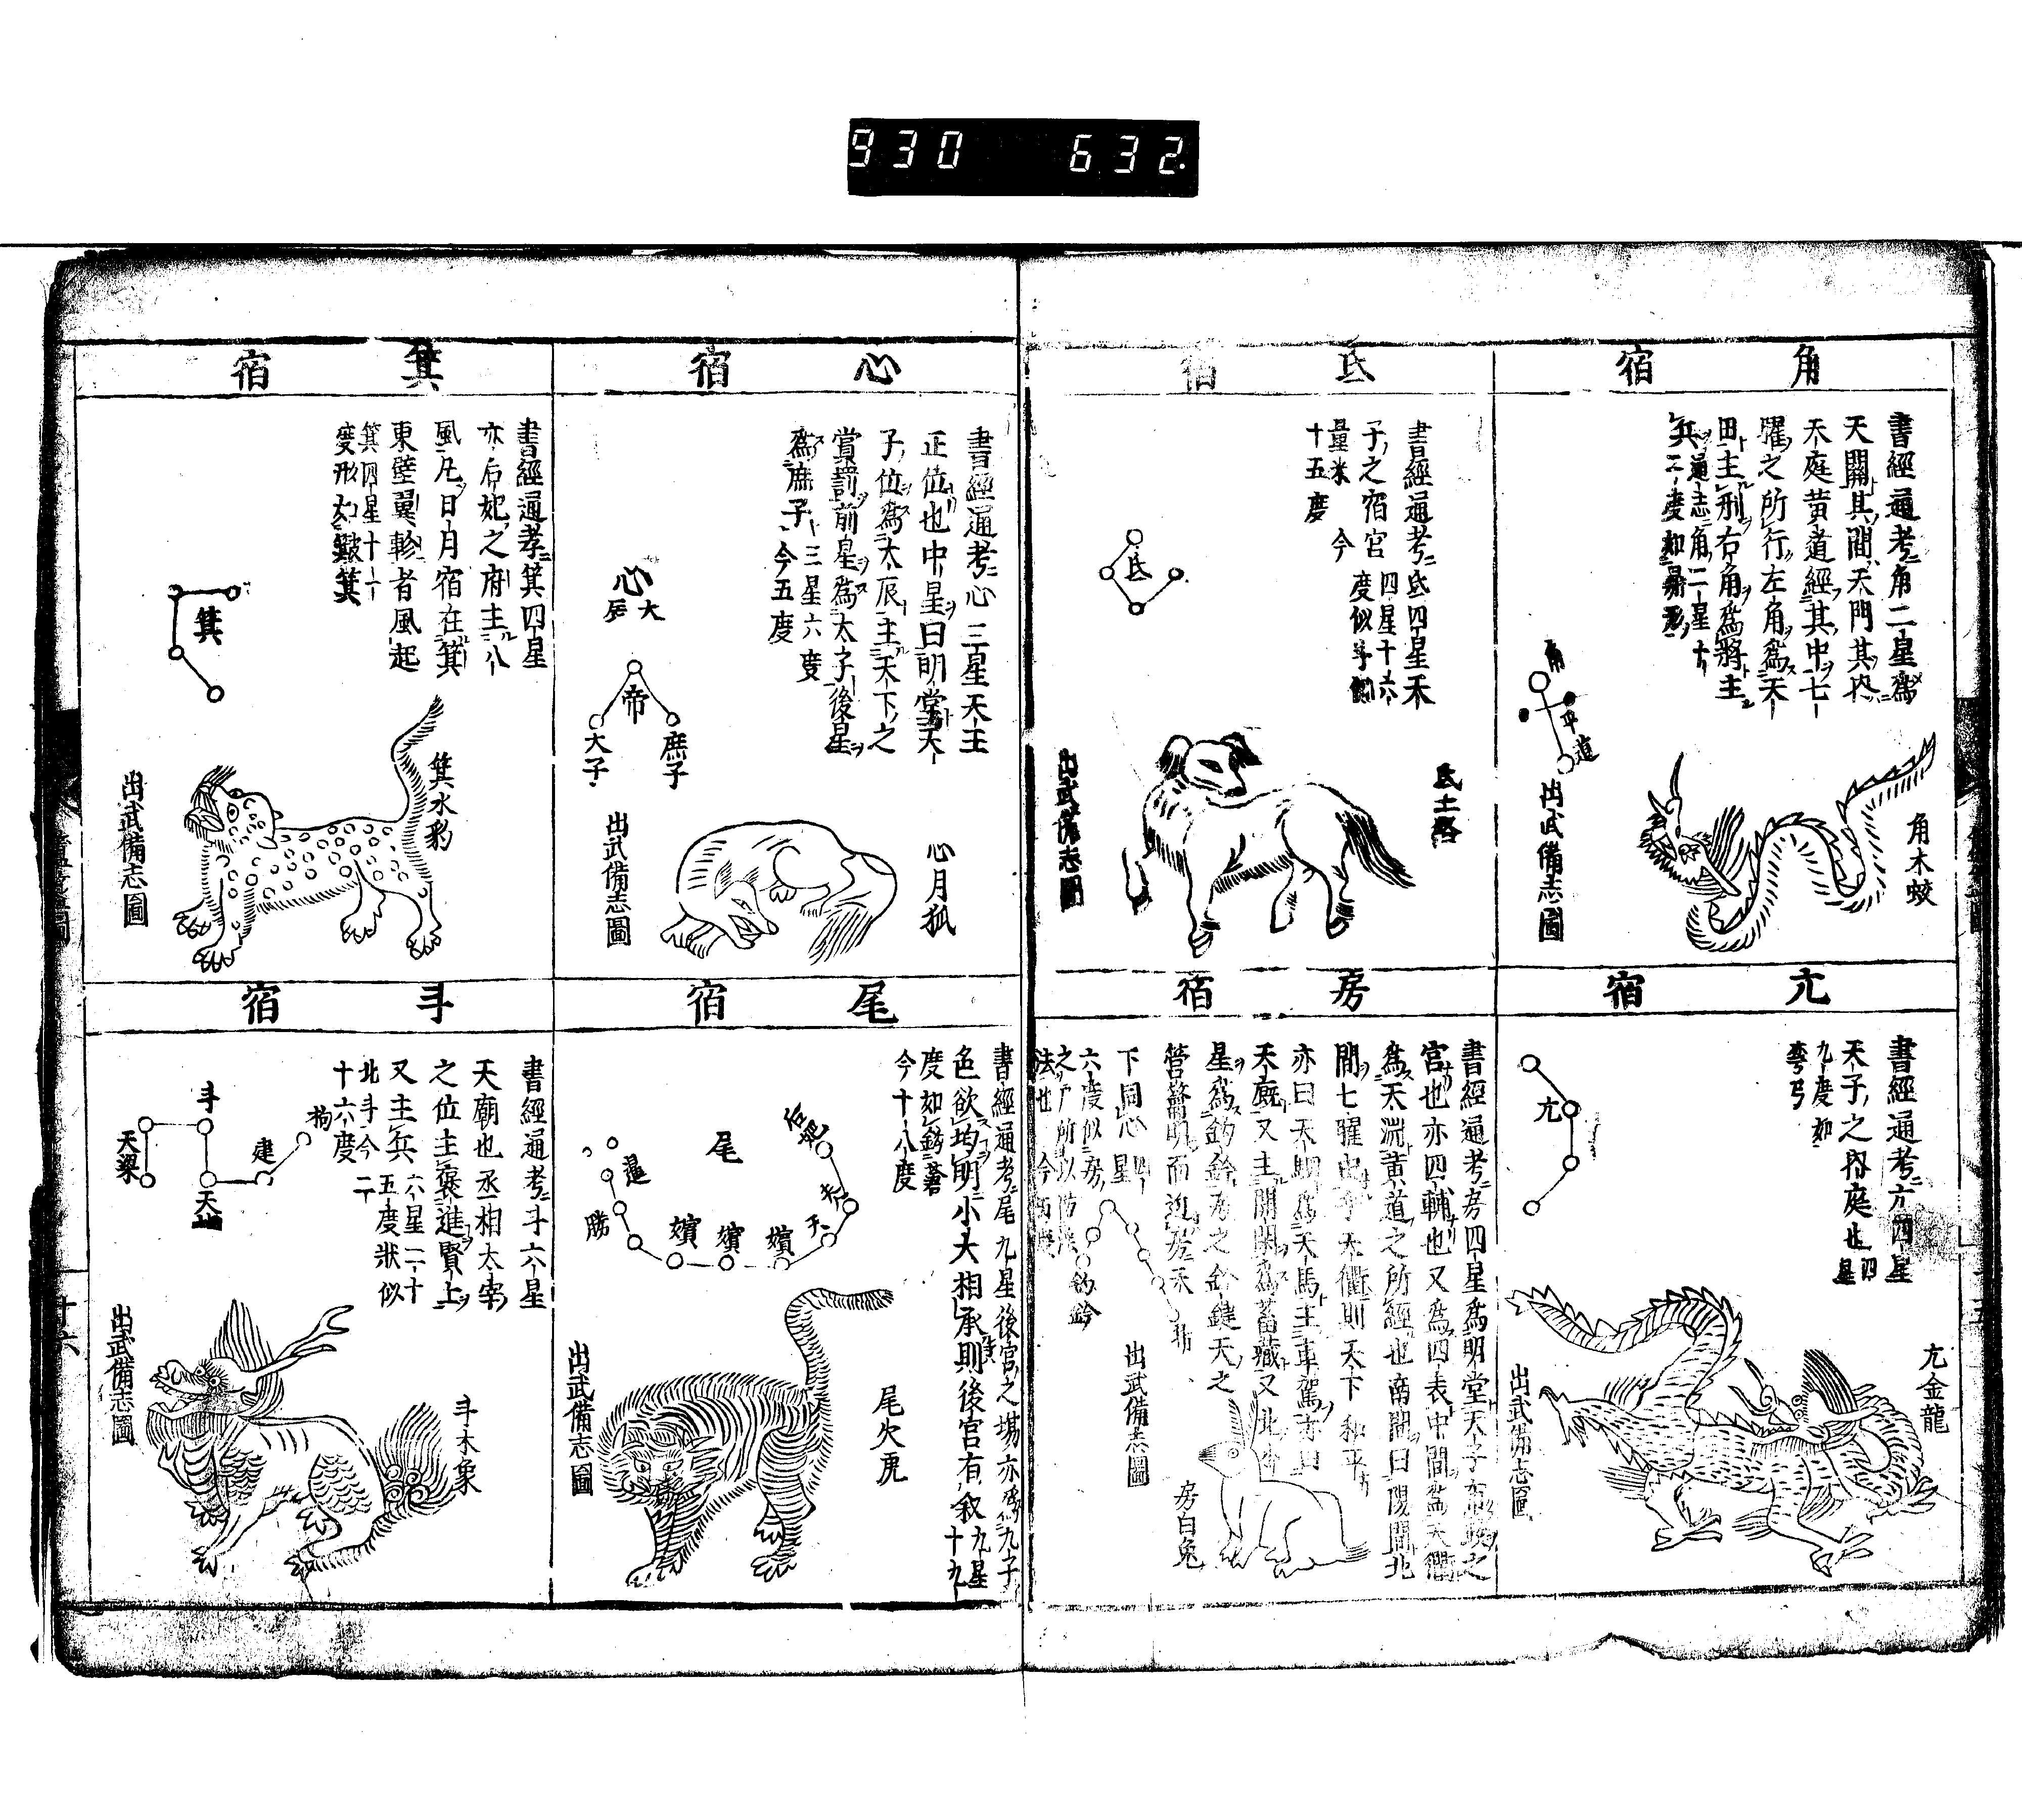 930 632
角宿
書經通考ニ角二星爲
天關其間天門其内
天庭黄道經其中七
曜之所行左角爲天
田主刑右角爲將主
兵
通志角二星十
二度如鼎形
角
平道
出武備志圖
角木蛟
亢宿
書經通考ニ亢四星
天子之内庭也
四星
九度如
彎弓
亢
亢金龍
出武備志圖
氐宿
書經通考ニ氐四星天
子之宿官
四星十六
度似
量米
今
十五度
氐
氐土貉
出武備志圖
房宿
書經通考房四星爲明堂天子布政之
宮也亦四輔也又爲四表中間爲天衢
爲天淵黄道之所經也南間曰陽間北
間七曜由乎天衢則天下和平
亦曰天駟爲天馬主車駕亦曰
天廐又主開閉爲蓄藏又北
星爲鈎鈐房之鈐鍵天之
管籥明而近房天
下同心
四星
六度似房
之所以防
法也
今
鈎鈐
出武備志圖
房白兔
心宿
書經通考ニ心三星天王
正位也中星曰明堂天
子位爲太辰主天下之
賞罰前星爲太子後星
爲庶子
三星六度
今五度
心
大辰
帝
太子
庶子
心月狐
出武備志圖
尾宿
書經通考ニ尾九星後宮之場亦爲九子
色欲均明小大相承則後宮有叙
九星十九
度如鈎著
今十八度
尾
后妃
嬪
嬪
嬪
媵
尾火虎
出武備志圖
箕宿
書經通考ニ箕四星
亦后妃之府主八
風凡日月宿在箕
東壁翼軫者風起
箕四星十一
度形如簸箕
箕
箕水豹
出武備志圖
斗宿
書經通考ニ斗六星
天廟也丞相太宰
之位主褒進賢上
又主兵
六星二十
五度狀似
北斗今二
十六度
斗
天梁
建
狗
斗木象
出武備志圖
十六